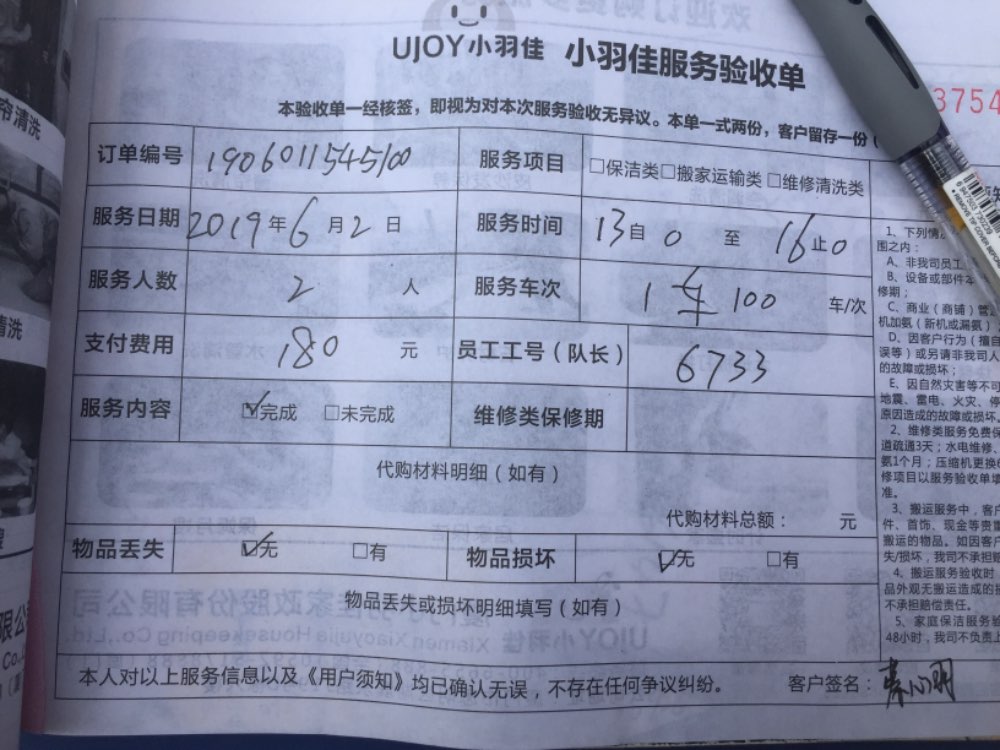 UJOY小羽佳 小羽佳服务验收单
3754
本验收单一经核签，即视为对本次服务验收无异议。本单一式两份，客户留存一份（
订单编号 190601154500 服务项目 □保洁类□搬家运输类 □维修清洗类
服务日期 2019年6月2日 服务时间 13自0 至 16止0
服务人数 2 人 服务车次 1车 100 车/次
支付费用 180 元 员工工号（队长） 6733
服务内容 ☑完成 □未完成 维修类保修期
代购材料明细（如有）
代购材料总额： 元
物品丢失 ☑无 □有 物品损坏 ☑无 □有
物品丢失或损坏明细填写（如有）
本人对以上服务信息以及《用户须知》均已确认无误，不存在任何争议纠纷。 客户签名：
1、下列情
围之内：
A、非我司员工
B、设备或部件本
修期；
C、商业（商铺）管
机加氨（新机或漏氨）
D、因客户行为（擅自
误等）或另请非我司人
的故障或损坏；
E、因自然灾害等不可
地震、雷电、火灾、停
原因造成的故障或损坏。
2、维修类服务免费保
道疏通3天；水电维修、
氨1个月；压缩机更换6
修项目以服务验收单填
准。
3、搬运服务中，客户
件、首饰、现金等贵重
搬运的物品。如因客户
失/损坏，我司不承担赔
4、搬运服务验收时
品外观无搬运造成的损
不承担赔偿责任。
5、家庭保洁服务验
48小时，我司不负责上
帘清洗
清洗
限公
Co.,